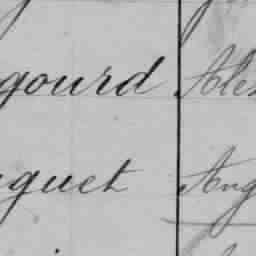 gourd Alex
guet Aug